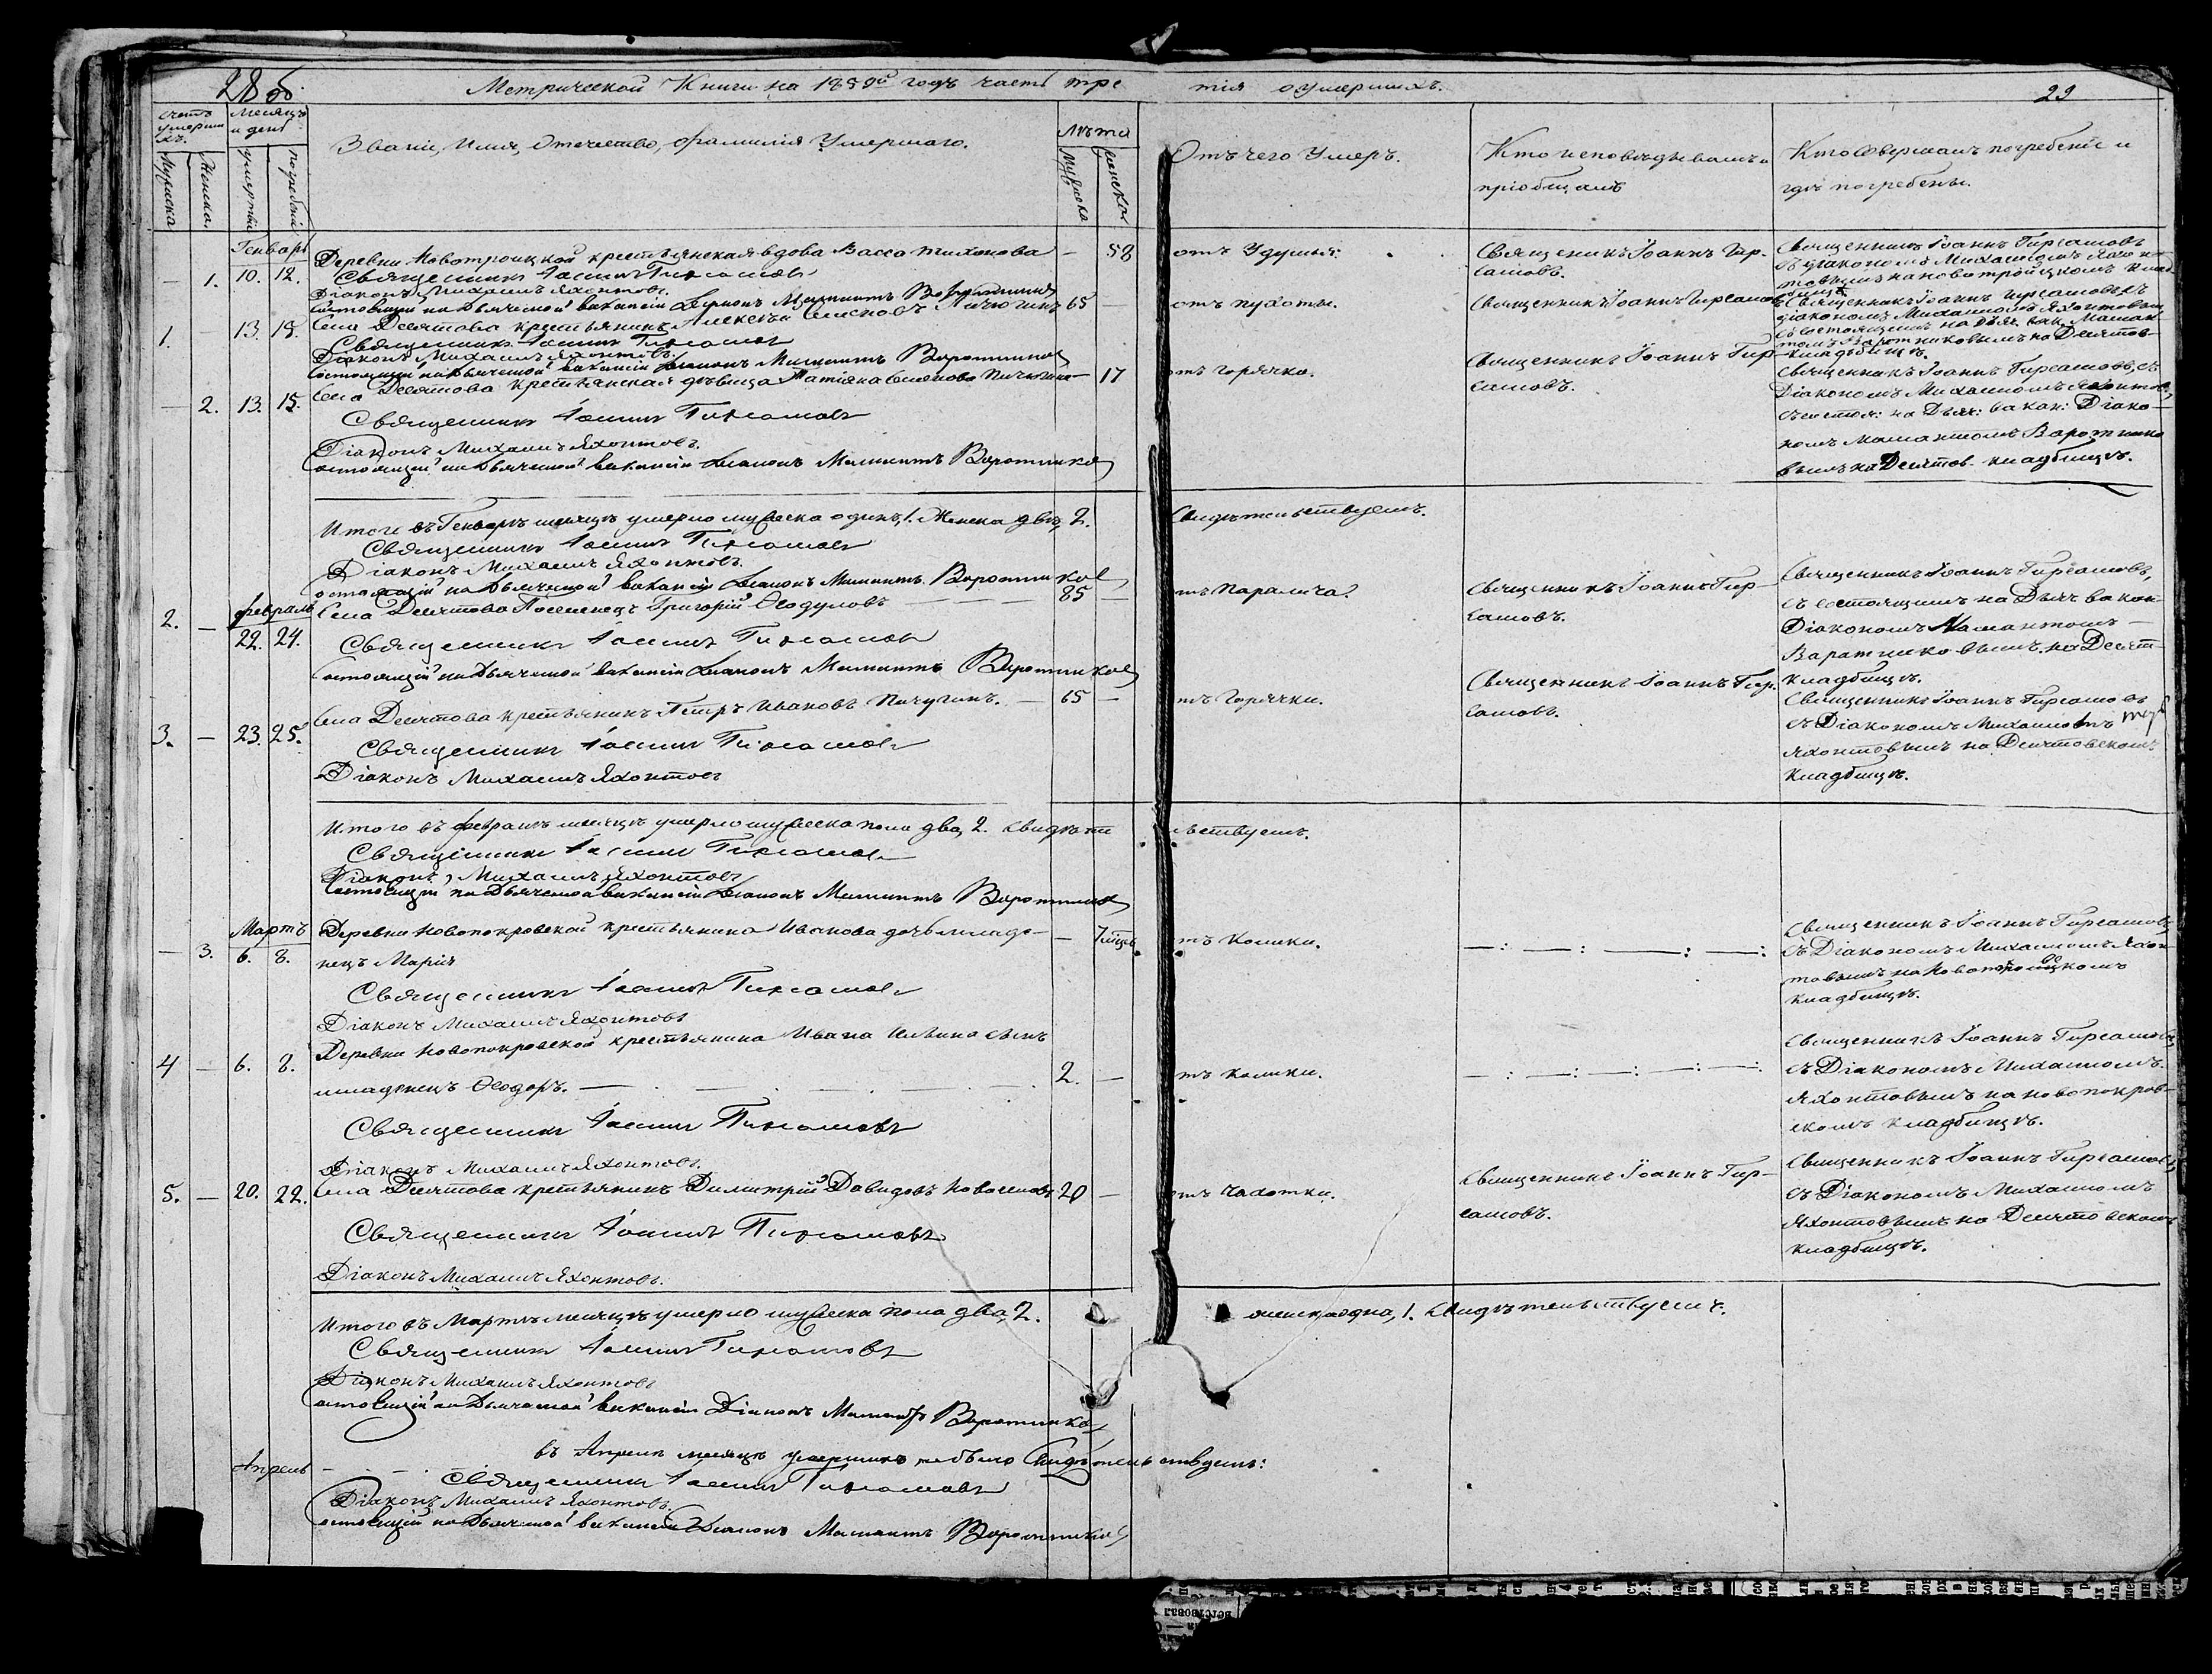 28 об.
Метрической Книги на 1859й годъ часть тре тія о умершихъ.
29
Счетъ умерши хъ.
Мужеска
Женска.
Месяцъ и день
умертвія
погребенія
Званіе, Имя, Отечество, фамилія Умершаго.
Лѣта
Мужеска
Женска
Отъ чего Умеръ.
Кто исповѣдывалъ и
пріобщалъ
Кто совершалъ погребеніе и
гдѣ погребены.
Генварь
— 1. 10. 12.
Деревни Новотроицкой крестьянская вдова Васса Тихонова — 58
отъ Удушья.
Священникъ Іоаннъ Гир-
самовъ.
Священникъ Іоаннъ Гирсамовъ
съ діакономъ Михаиломъ Яхон
товымъ на новотройцкомъ клад
бищѣ
Священникъ Іоаннъ Гирсамовъ
Діаконъ Михаилъ Яхонтовъ.
Состоящій на Дьяческой вакансіи Діаконъ Мамантъ Воротниковъ
1. 13. 15.
Села Десятова крестьянинъ Алексѣй Семеновъ Пичугинъ 65
отъ пухоты.
Священникъ Іоаннъ Гирсамовъ
Священникъ Іоаннъ Гирсамовъ съ
діакономъ Михаиломъ Яхонтовым
съ состоящимъ на Дьяч. вак. Маман
томъ Воротниковымъ на Десятов-
кладбищѣ.
Священникъ Іоаннъ Гирсамовъ
Діаконъ Михаилъ Яхонтовъ.
Состоящій на Дьяческой вакансіи Діаконъ Мамантъ Воротниковъ
— 2. 13. 15.
Села Десятова крестьянская дѣвица Татіяна Семенова Пичюгина — 17
отъ горячки.
Священникъ Іоаннъ Гир-
самовъ.
Священникъ Іоаннъ Гирсамовъ, съ
Діакономъ Михаиломъ Яхонтов,
съ состоя: на Дьяч: вакан: Діако-
номъ Мамантомъ Воротнико
вымъ на Десятов- кладбищѣ.
Священникъ Іоаннъ Гирсамовъ
Діаконъ Михаилъ Яхонтовъ.
Состоящій на Дьяческой вакансіи Діаконъ Мамантъ Воротниковъ
Итого въ Генварѣ месяцѣ умерло мужеска одинъ, 1. Женска двѣ, 2. Свидѣтельствуемъ.
Священникъ Іоаннъ Гирсамовъ
Діаконъ Михаилъ Яхонтовъ.
Состоящій на Дьяческой вакансіи Діаконъ Мамантъ Воротниковъ
февраль
2. — 22. 24.
Села Десятова Поселенецъ Григорій Ѳеодуловъ — 85 —
отъ Паралича.
Священникъ Іоаннъ Гир-
самовъ.
Священникъ Іоаннъ Гирсамовъ,
съ состоящимъ на Дьяч вакан-
Діакономъ Мамантомъ —
Варатниковымъ. на Десят-
кладбищѣ.
Священникъ Іоаннъ Гирсамовъ
Состоящій на Дьяческой вакансіи Діаконъ Мамантъ Воротниковъ
3. — 23. 25.
Села Десятова крестьянинъ Петръ Ивановъ Пичугинъ. — 65 —
отъ горячки.
Священникъ Іоаннъ Гир-
самовъ.
Священникъ Іоаннъ Гирсамовъ
съ Діакономъ Михаиломъ
Яхонтовымъ на Десятовскомъ
кладбищѣ.
Священникъ Іоаннъ Гирсамовъ
Діаконъ Михаилъ Яхонтовъ
Итого въ февралѣ месяцѣ умерло мужеска пола два, 2. Свидѣте льствуемъ.
Священникъ Іоаннъ Гирсамовъ
Діаконъ, Михаилъ Яхонтовъ
Состоящій на Дьяческой вакансіи Діаконъ Мамантъ Воротниковъ
Мартъ
— 3. 6. 8.
Деревни Новопокровской крестьянина Иванова дочь младе-
нецъ Марія
—
отъ Колики.
Священникъ Іоаннъ Гирсамовъ
съ Діакономъ Михаиломъ Яхон-
товымъ на
кладбищѣ.
Священникъ Іоаннъ Гирсамовъ
Діаконъ Михаилъ Яхонтовъ
4 — 6. 8.
Деревни Новопокровской крестьянина Ивана Ильина сынъ
младенецъ Ѳеодоръ. — 2. —
отъ колики.
Священникъ Іоаннъ Гирсамовъ,
съ Діакономъ Михаиломъ
Яхонтовымъ на новопокров-
скомъ кладбищѣ.
Священникъ Іоаннъ Гирсамовъ
Діаконъ Михаилъ Яхонтовъ.
5. — 20. 22.
Села Десятова крестьянинъ Димитрій Давидовъ Новоселовъ 20 —
отъ Чахотки.
Священникъ Іоаннъ Гир-
самовъ.
Священникъ Іоаннъ Гирсамовъ,
съ Діакономъ Михаиломъ
Яхонтовымъ на Десятовскомъ
кладбищѣ.
Священникъ Іоаннъ Гирсамовъ
Діаконъ Михаилъ Яхонтовъ.
Итого въ Мартѣ месяцѣ умерло мужеска пола два, 2. женска одна, 1. Свидѣтельствуемъ.
Священникъ Іоаннъ Гирсамовъ
Діаконъ Михаилъ Яхонтовъ
Состоящій на Дьяческой вакансіи Діаконъ Мамантъ Воротниковъ
Апрель
въ Апрелѣ месяцѣ умершихъ не было Свидѣтельствуемъ:
Священникъ Іоаннъ Гирсамовъ
Діаконъ Михаилъ Яхонтовъ.
Состоящій на Дьяческой вакансіи Діаконъ Мамантъ Воротниковъ